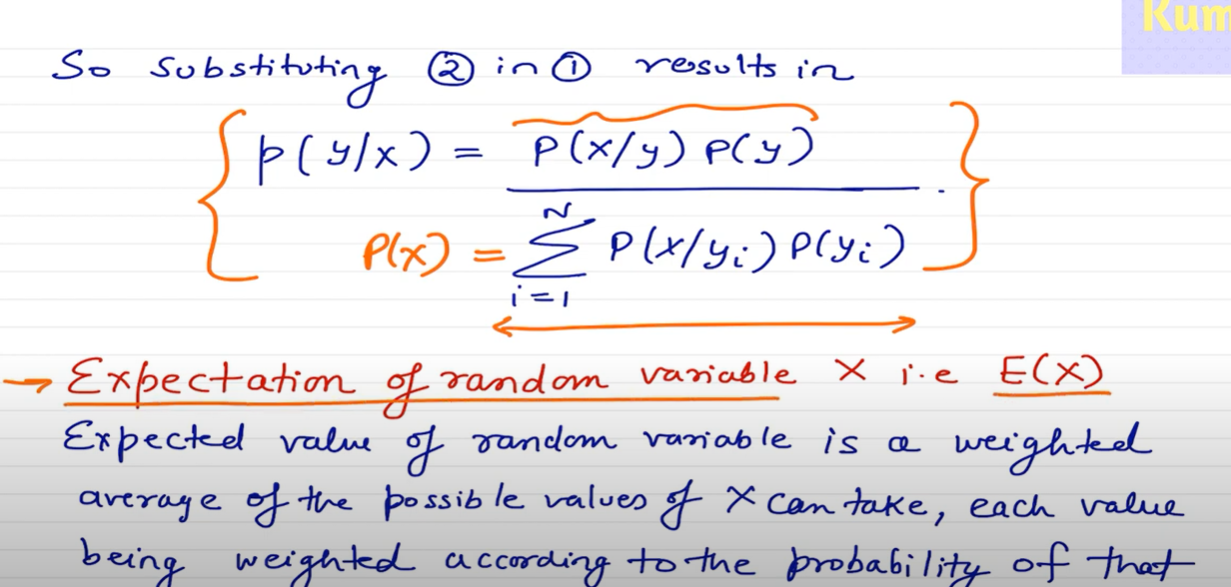 Kum
So substituting ② in ① results in
p(y/x) = P(x/y) P(y)
P(x) = N Σ i=1 P(x/yi) P(yi)
→ Expectation of random variable X i.e E(X)
Expected value of random variable is a weighted
average of the possible values of X can take, each value
being weighted according to the probability of that